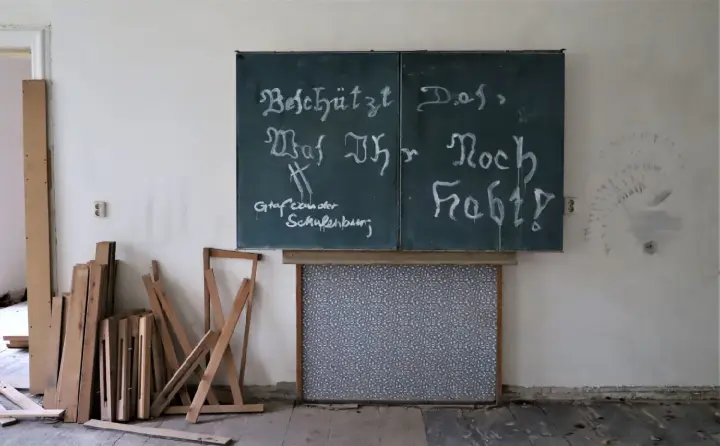 Beschützt Das,
Was Ihr Noch
Habt!
Graf von der
Schulenburg